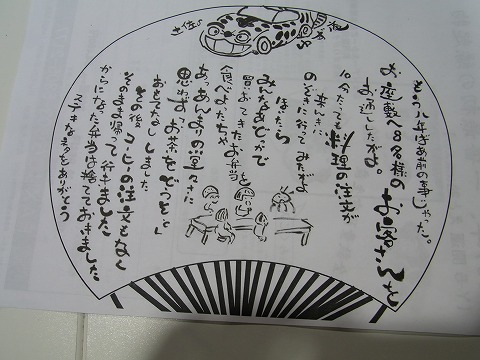 土佐の
もう八年ばあ前の事じゃった。
お座敷へ8名様のお客さんを
お通ししたがよ。
10分たっても料理の注文が
来んきに
のぞきに行ってみたがよ
ほいたら
みんなあどっかで
買おてきたお弁当を
食べよったちや
あっあんまりの堂々さに
思わずお茶をどうぞとし
おもてなししました
その後コーヒーの注文もなく
そのまま帰って行きました
からになった弁当は捨てておきました
ステキな
をありがとう